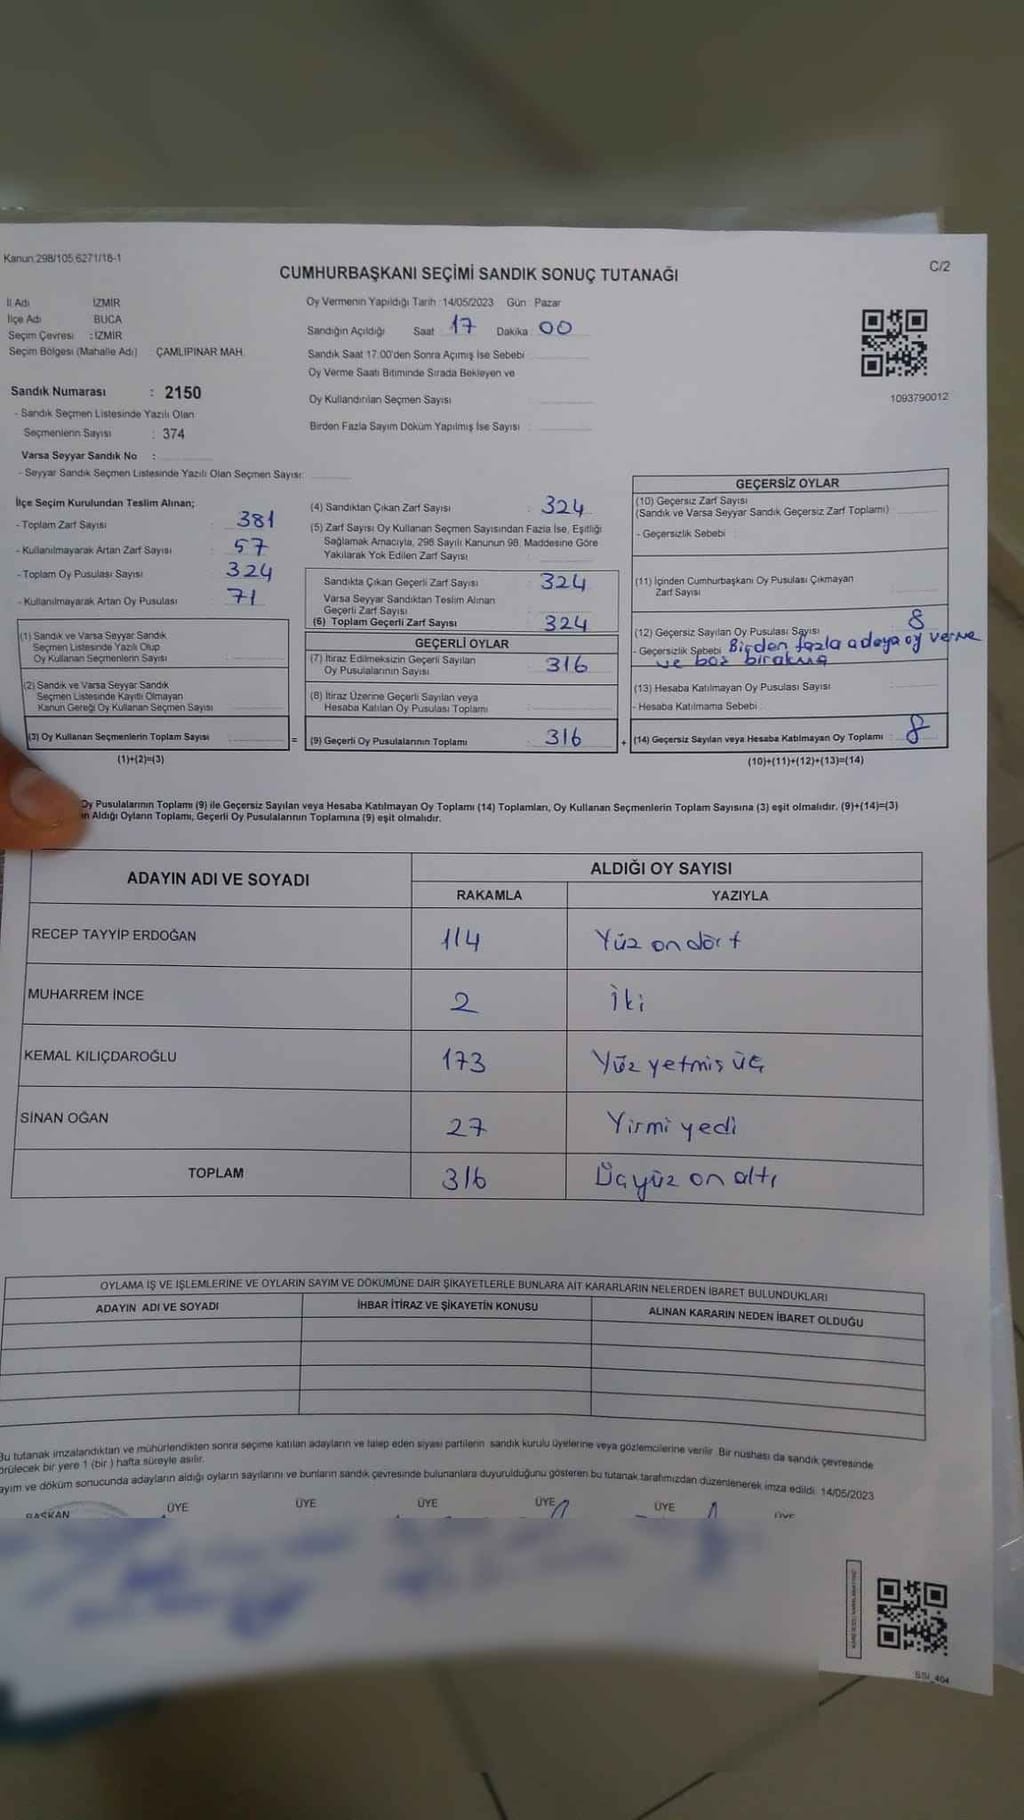 Kanun 298/105 6271/18-1
C/2
CUMHURBAŞKANI SEÇİMİ SANDIK SONUÇ TUTANAĞI
İl Adı İZMİR
İlçe Adı BUCA
Seçim Çevresi : İZMİR
Seçim Bölgesi (Mahalle Adı) ÇAMLIPINAR MAH.
Sandık Numarası : 2150
- Sandık Seçmen Listesinde Yazılı Olan
Seçmenlerin Sayısı : 374
Varsa Seyyar Sandık No :
- Seyyar Sandık Seçmen Listesinde Yazılı Olan Seçmen Sayısı:
Oy Vermenin Yapıldığı Tarih : 14/05/2023 Gün : Pazar
Sandığın Açıldığı Saat 17 Dakika 00
Sandık Saat 17:00'den Sonra Açımış İse Sebebi
Oy Verme Saati Bitiminde Sırada Bekleyen ve
Oy Kullandırılan Seçmen Sayısı
Birden Fazla Sayım Döküm Yapılmış İse Sayısı :
1093790012
İlçe Seçim Kurulundan Teslim Alınan;
- Toplam Zarf Sayısı : 381
- Kullanılmayarak Artan Zarf Sayısı : 57
- Toplam Oy Pusulası Sayısı : 324
- Kullanılmayarak Artan Oy Pusulası : 71
(1) Sandık ve Varsa Seyyar Sandık
Seçmen Listesinde Yazılı Olup
Oy Kullanan Seçmenlerin Sayısı
(2) Sandık ve Varsa Seyyar Sandık
Seçmen Listesinde Kayıtlı Olmayan
Kanun Gereği Oy Kullanan Seçmen Sayısı
(3) Oy Kullanan Seçmenlerin Toplam Sayısı
=
(1)+(2)=(3)
(4) Sandıktan Çıkan Zarf Sayısı : 324
(5) Zarf Sayısı Oy Kullanan Seçmen Sayısından Fazla İse, Eşitliği
Sağlamak Amacıyla, 298 Sayılı Kanunun 98. Maddesine Göre
Yakılarak Yok Edilen Zarf Sayısı
Sandıkta Çıkan Geçerli Zarf Sayısı : 324
Varsa Seyyar Sandıktan Teslim Alınan
Geçerli Zarf Sayısı
(6) Toplam Geçerli Zarf Sayısı : 324
GEÇERLİ OYLAR
(7) İtiraz Edilmeksizin Geçerli Sayılan
Oy Pusulalarının Sayısı : 316
(8) İtiraz Üzerine Geçerli Sayılan veya
Hesaba Katılan Oy Pusulası Toplamı
(9) Geçerli Oy Pusulalarının Toplamı : 316
+
GEÇERSİZ OYLAR
(10) Geçersiz Zarf Sayısı
(Sandık ve Varsa Seyyar Sandık Geçersiz Zarf Toplamı)
- Geçersizlik Sebebi :
(11) İçinden Cumhurbaşkanı Oy Pusulası Çıkmayan
Zarf Sayısı
(12) Geçersiz Sayılan Oy Pusulası Sayısı 8
- Geçersizlik Sebebi Birden fazla adaya oy verme
ve boş bırakma
(13) Hesaba Katılmayan Oy Pusulası Sayısı :
- Hesaba Katılmama Sebebi :
(14) Geçersiz Sayılan veya Hesaba Katılmayan Oy Toplamı : 8
(10)+(11)+(12)+(13)=(14)
Oy Pusulalarının Toplamı (9) ile Geçersiz Sayılan veya Hesaba Katılmayan Oy Toplamı (14) Toplamları, Oy Kullanan Seçmenlerin Toplam Sayısına (3) eşit olmalıdır. (9)+(14)=(3)
Aldığı Oyların Toplamı, Geçerli Oy Pusulalarının Toplamına (9) eşit olmalıdır.
ADAYIN ADI VE SOYADI ALDIĞI OY SAYISI
RAKAMLA YAZIYLA
RECEP TAYYİP ERDOĞAN 114 Yüz on dört
MUHARREM İNCE 2 İki
KEMAL KILIÇDAROĞLU 173 Yüz yetmiş üç
SİNAN OĞAN 27 Yirmi yedi
TOPLAM 316 Üçyüz on altı
OYLAMA İŞ VE İŞLEMLERİNE VE OYLARIN SAYIM VE DÖKÜMÜNE DAİR ŞİKAYETLERLE BUNLARA AİT KARARLARIN NELERDEN İBARET BULUNDUKLARI
ADAYIN ADI VE SOYADI İHBAR İTİRAZ VE ŞİKAYETİN KONUSU ALINAN KARARIN NEDEN İBARET OLDUĞU
Bu tutanak imzalandıktan ve mühürlendikten sonra seçime katılan adayların ve talep eden siyasi partilerin sandık kurulu üyelerine veya gözlemcilerine verilir. Bir nüshası da sandık çevresinde
görülecek bir yere 1 (bir) hafta süreyle asılır.
Sayım ve döküm sonucunda adayların aldığı oyların sayılarını ve bunların sandık çevresinde bulunanlara duyurulduğunu gösteren bu tutanak tarafımızdan düzenlenerek imza edildi. 14/05/2023
BAŞKAN ÜYE ÜYE ÜYE ÜYE ÜYE ÜYE